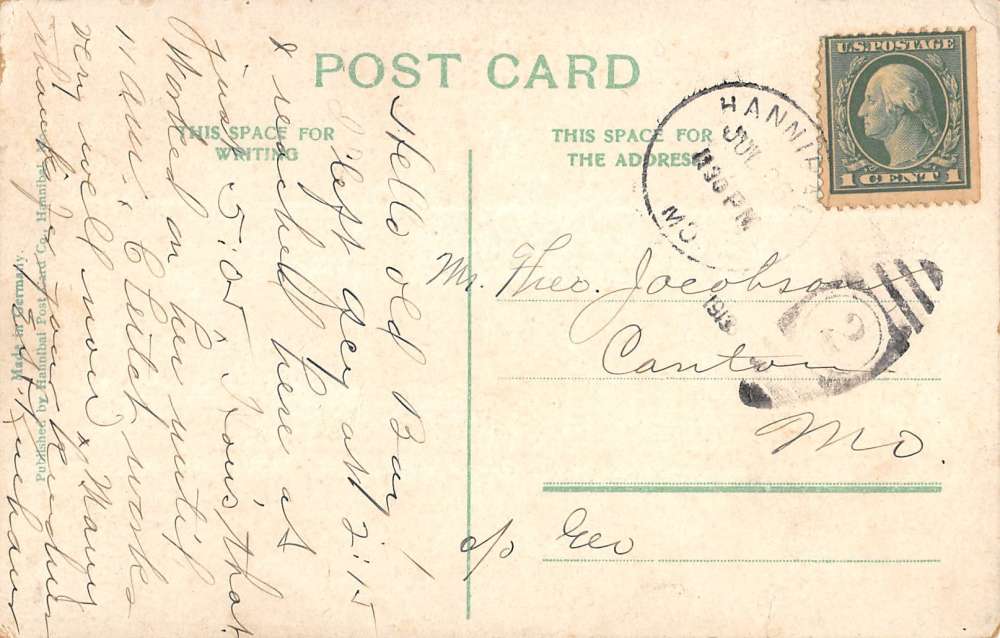 POST CARD
THIS SPACE FOR
WRITING
THIS SPACE FOR
THE ADDRESS
U.S. POSTAGE
1 CENT 1
HANNIBAL
MO.
30 PM
1913
Mr. Theo. Jacobson
Canton
Mo.
c/o Geo
Hello old Boy!
I left Q'cy at 2:15
& reached here at
just 5:05. Four that
Worked on her until
Clutch works
very well now, Many
thanks for your kindness
Made in Germany
Published by Hannibal Post Card Co., Hannibal